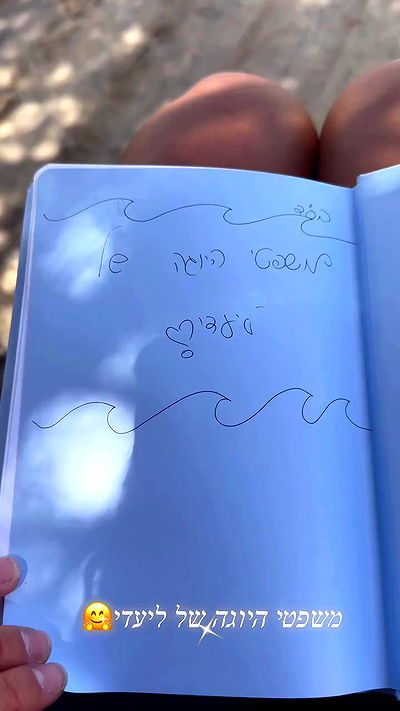 בס"ד
משפטי היוגה של
ליעדי
משפטי היוגה של ליעדי🤗